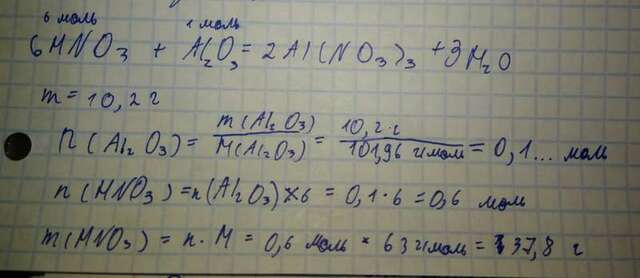 6 моль 1 моль
6HNO₃ + Al₂O₃ = 2Al(NO₃)₃ + 3H₂O
m = 10,2 г
n(Al₂O₃) = m(Al₂O₃) / M(Al₂O₃) = 10,2 г / 101,96 г/моль = 0,1... моль
n(HNO₃) = n(Al₂O₃) × 6 = 0,1 · 6 = 0,6 моль
m(HNO₃) = n · M = 0,6 моль * 63 г/моль = 37,8 г